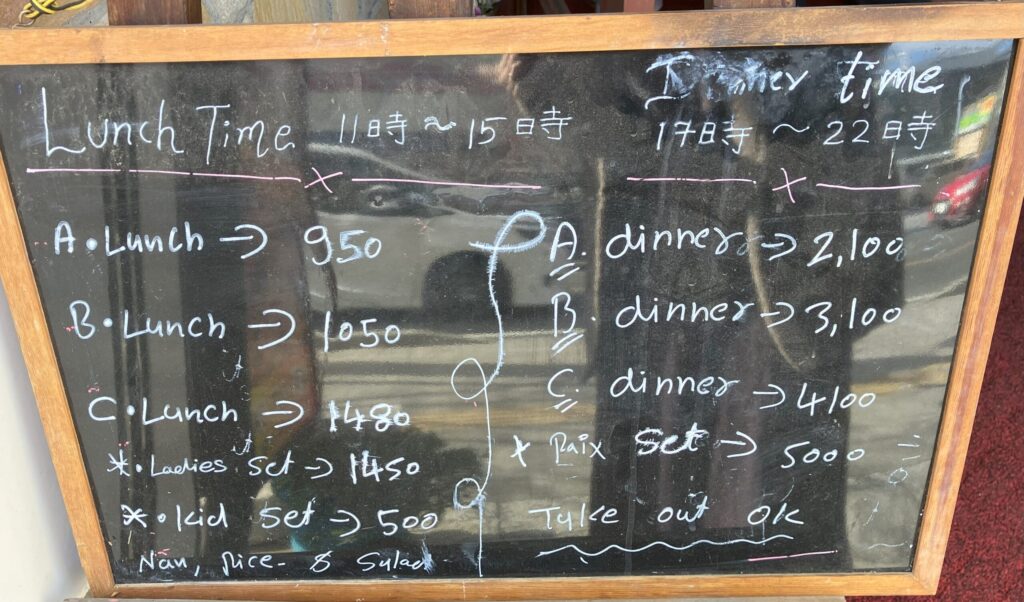 Lunch Time 11時~15時
A・Lunch → 950
B・Lunch → 1050
C・Lunch → 1480
*・Ladies Set → 1450
*・kid Set → 500
Nan, Rice & Salad
Dinner time
17時~22時
A. dinner → 2,100
B. dinner → 3,100
C. dinner → 4100
Set → 5000
Take out ok